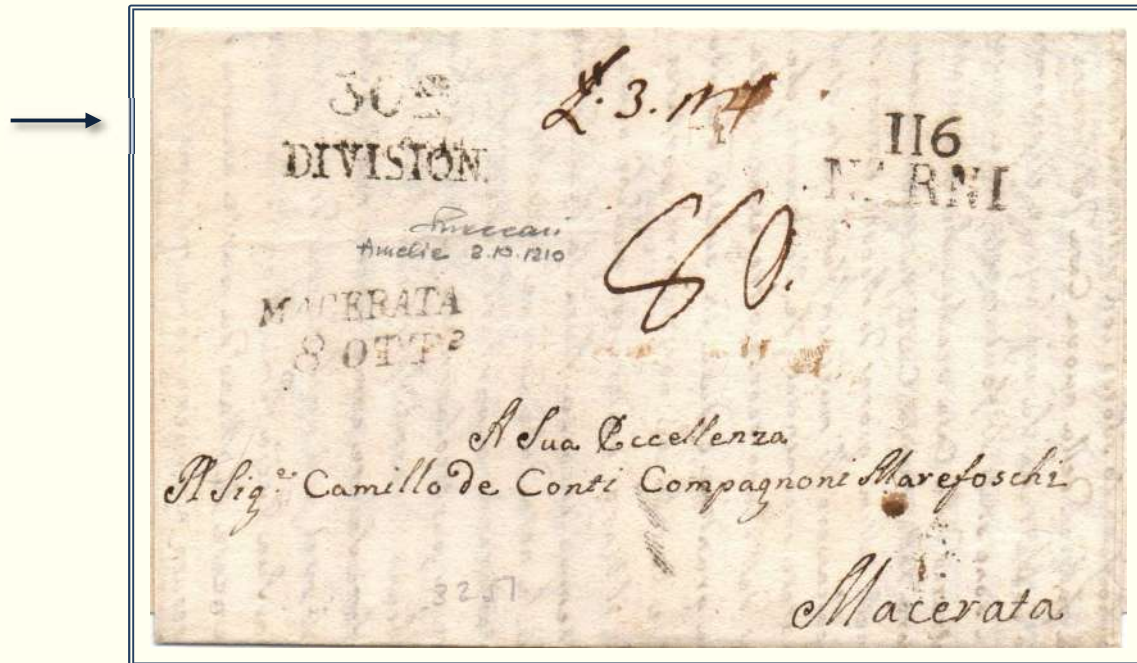 30me
DIVISION.
L. 3.
116
NARNI
Amelia 2.10.1810
80.
MACERATA
8 OTTe
A Sua Eccellenza
Il Sig.re Camillo de Conti Compagnoni Marefoschi
Macerata